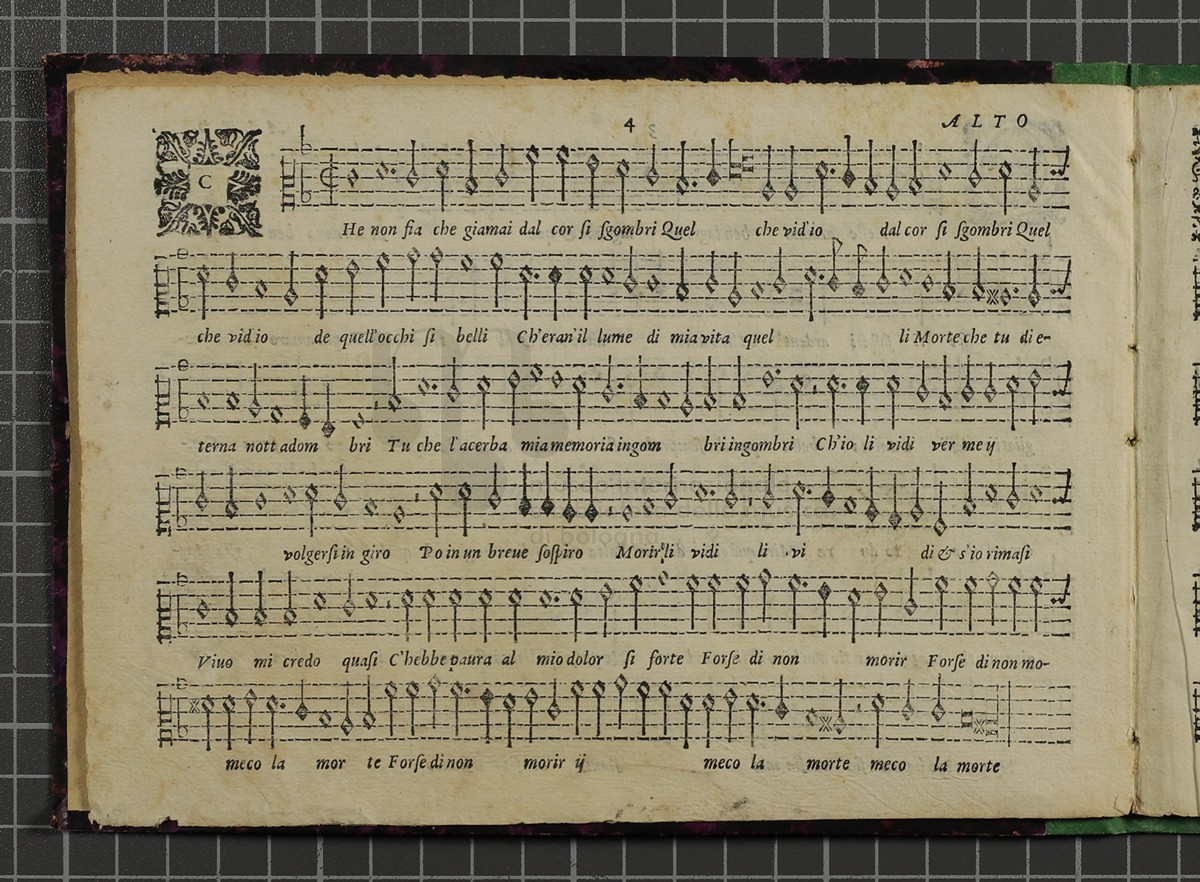 4
ALTO
C
He non fia che giamai dal cor ſi ſgombri Quel che vid'io dal cor ſi ſgombri Quel
che vid io de quell'occhi ſi belli Ch'eran'il lume di mia vita quel li Morte che tu di e-
terna nott adom bri Tu che l'acerba mia memoria ingom bri ingombri Ch'io li vidi ver me ij
volgerſi in giro Po in un breue ſoſpiro Morir li vidi li vi di & s'io rimaſi
Viuo mi credo quaſi C'hebbe paura al mio dolor ſi forte Forſe di non morir Forſe di non mo-
meco la mor te Forſe di non morir ij meco la morte meco la morte